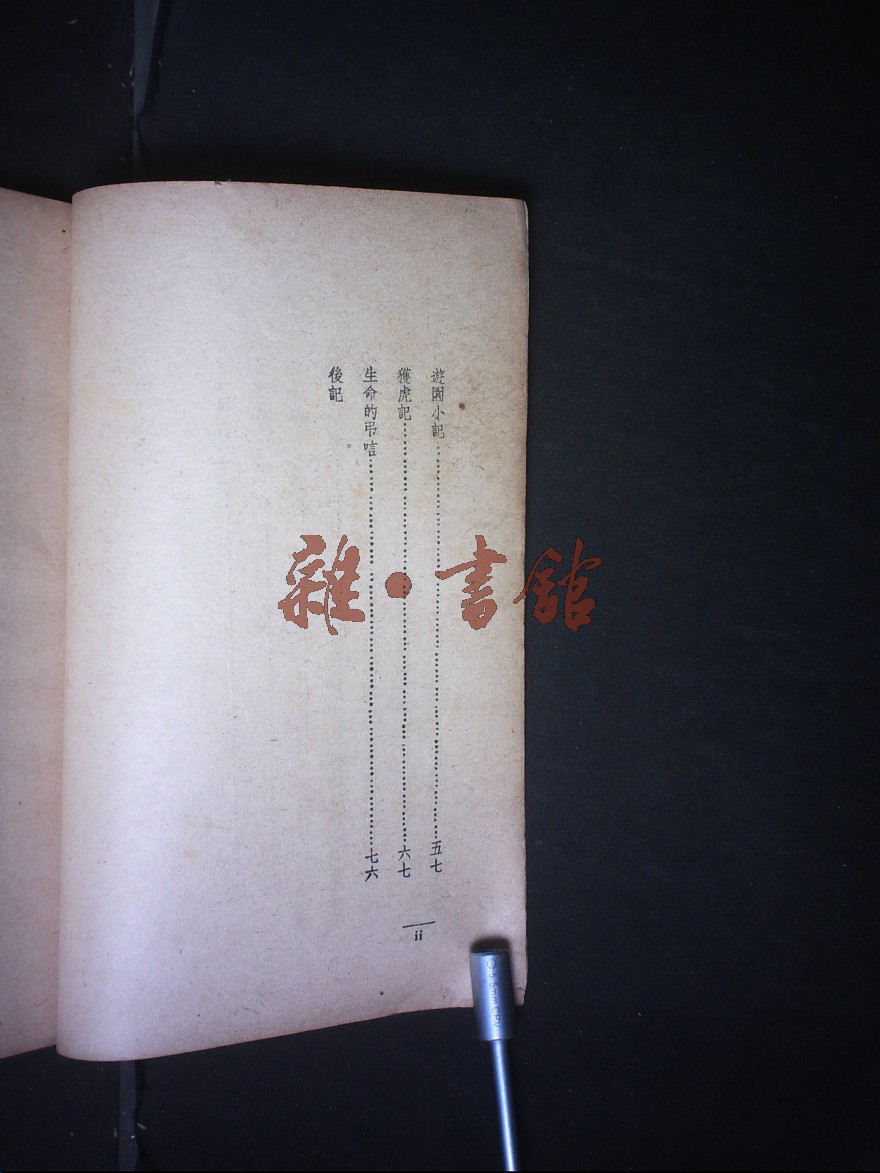 遊園小記……五七
獲虎記……六七
生命的弔唁……七六
後記
ii
雜·書館